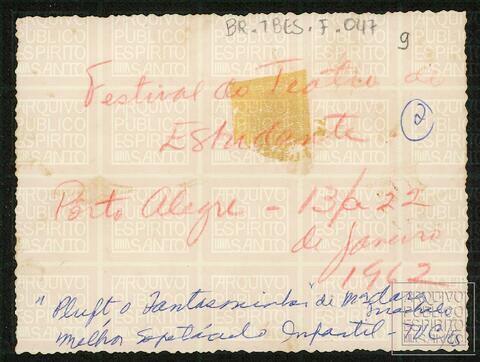 BR.TBES.F.047
9
Festival do Teatro de
Estudante.
2
Porto Alegre - 13/a 22
de Janeiro
1962
"Pluft o Fantasminha" de Ma Clara
Machado
Melhor Espetáculo Infantil -
ARQUIVO
PÚBLICO
ESPÍRITO
SANTO